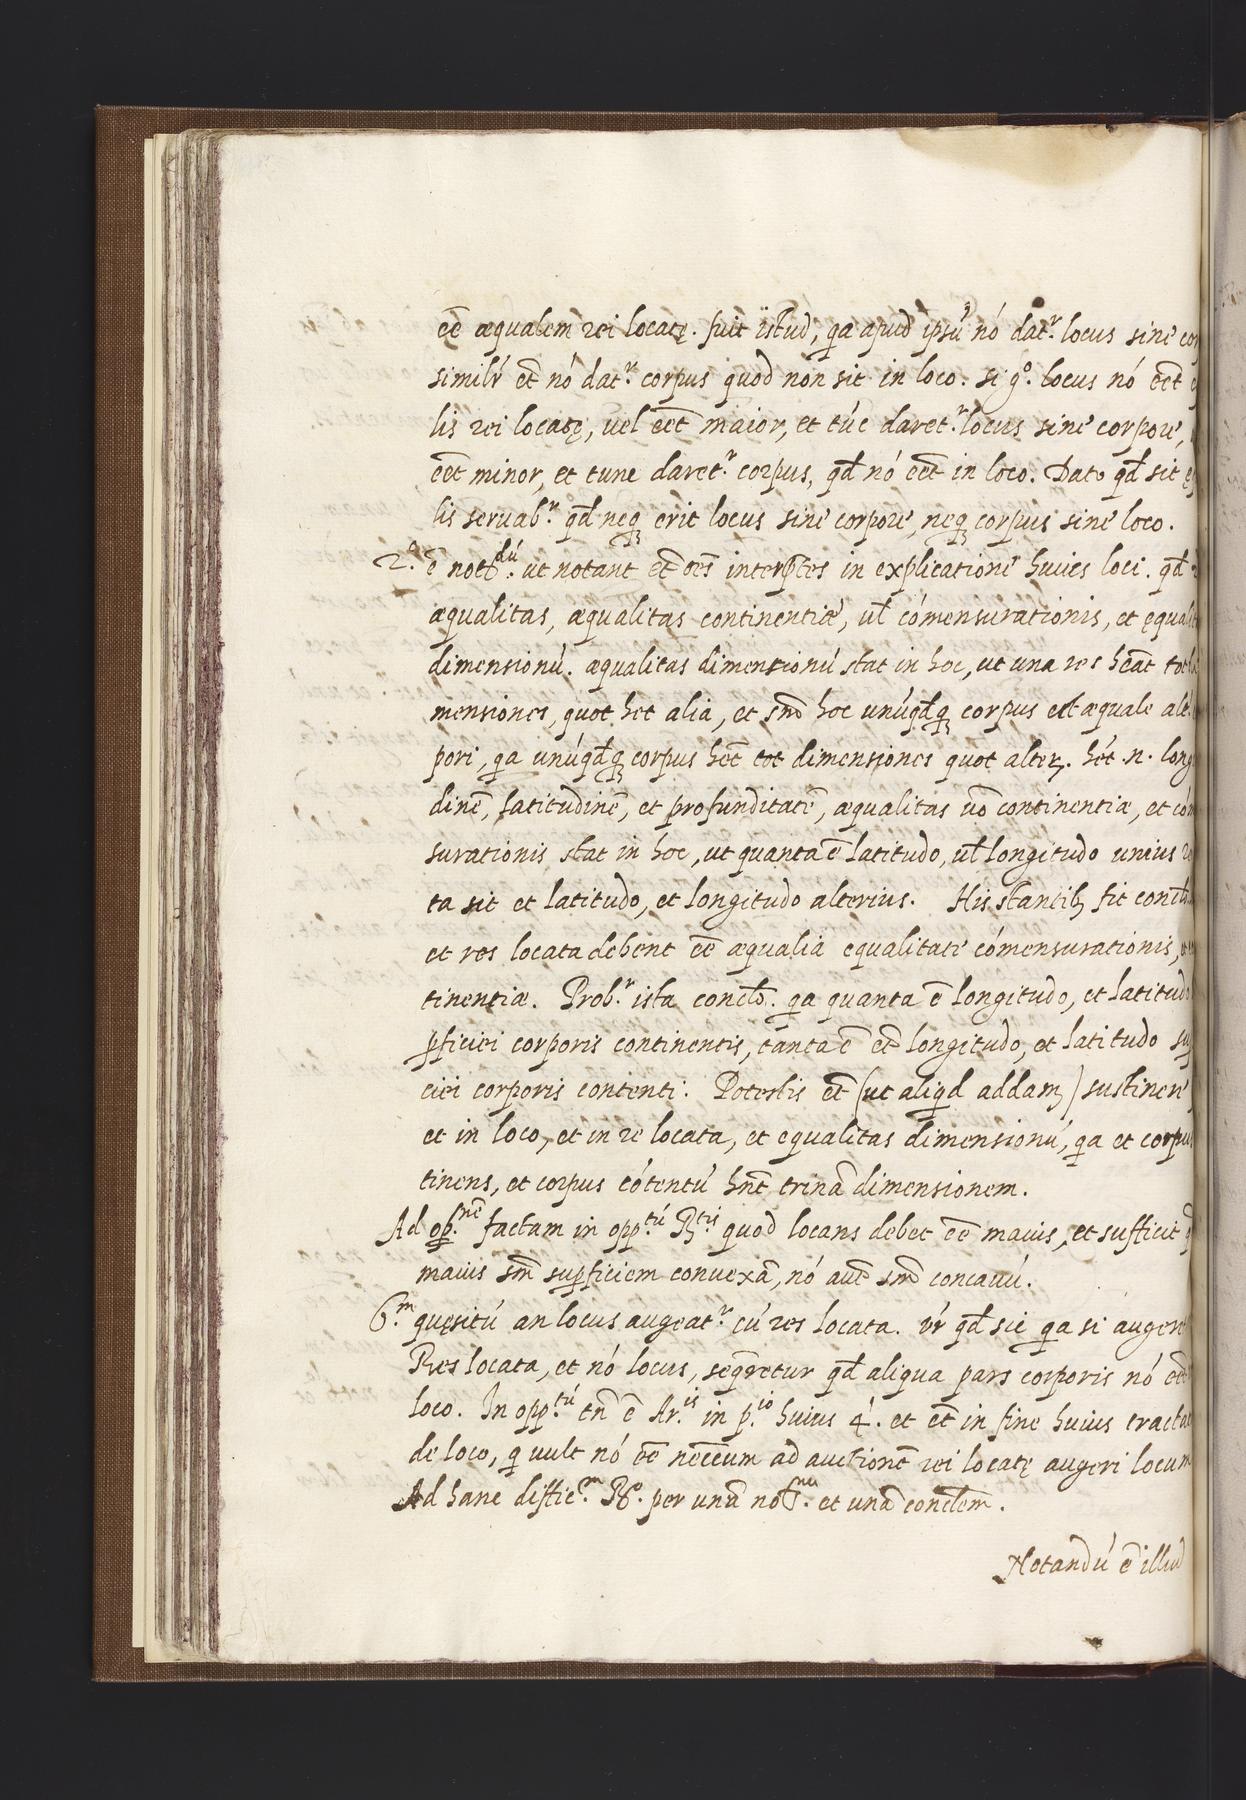 eē æqualem rei locatę. fuit istud, qa apud ipsú nó dat.ʳ locus sine
similr̄ et̄ nó dat.ʳ corpus quod non sit in loco. si gº. locus nó eēt
lis rei locatę, vel eēt maior, et túc daret.ʳ locus sine corpore,
eēt minor, et tunc daret.ʳ corpus, qd̄ nó eēt in loco. Dato qd̄ sit
lis servab.ʳ qd̄ neq₃ erit locus sine corpore, neq₃ corpus sine loco.
2.º ē not.dú ut notant et̄ oēs interp̄tes in explicatione huius loci. qd̄
æqualitas, æqualitas continentiæ, ul̄ cómensurationis, et ęqual
dimensionú. æqualitas dimensionú stat in hoc, ut una res heāt tot
mensiones, quot het alia, et sm̄ hoc unúqd̄q₃ corpus est æquale alt
pori, qa unúqd̄q₃ corpus hēt tot dimensiones quot alter. hēt .n. long
dinē, latitudinē, et profunditatē, æqualitas uō continentiæ, et cóm
surationis stat in hoc, ut quanta ē latitudo, ul̄ longitudo unius
ta sit et latitudo, et longitudo alterius. His stantib₃ sit concl
et res locata debent eē æqualia equalitate cómensurationis,
tinentiæ. Prob.ʳ ista conclō. qa quanta ē longitudo, et latitudo
ꝑficiei corporis continentis, tanta ē et̄ longitudo, et latitudo su
ciei corporis contenti. Potestis et̄ (ut aliqd addam) sustinere
et in loco, et in re locata, et equalitas dimensionú, qa et corpus
tinens, et corpus cótentú hn̄t trinā dimensionem.
Ad op̄.nē factam in opp.tú R.tis quod locans debet eē maius, et sufficit
maius sm̄ suꝑficiem convexā, nó aūt sm̄ concavú.
6.m quęsitú an locus augeat.ʳ cú res locata. vr̄ qd̄ sic qa si auger
Res locata, et nó locus, seqretur qd̄ aliqua pars corporis nó eēt
loco. In opp.tú tn̄ ē Ar.is in p.io huius 4.i et et̄ in fine huius tracta
de loco, q vult nó eē necēum ad auctionē rei locatę augeri locum
Ad hanc diffic.m Rº. per unā not.nem et unā conclēm.
Notandú ē illud